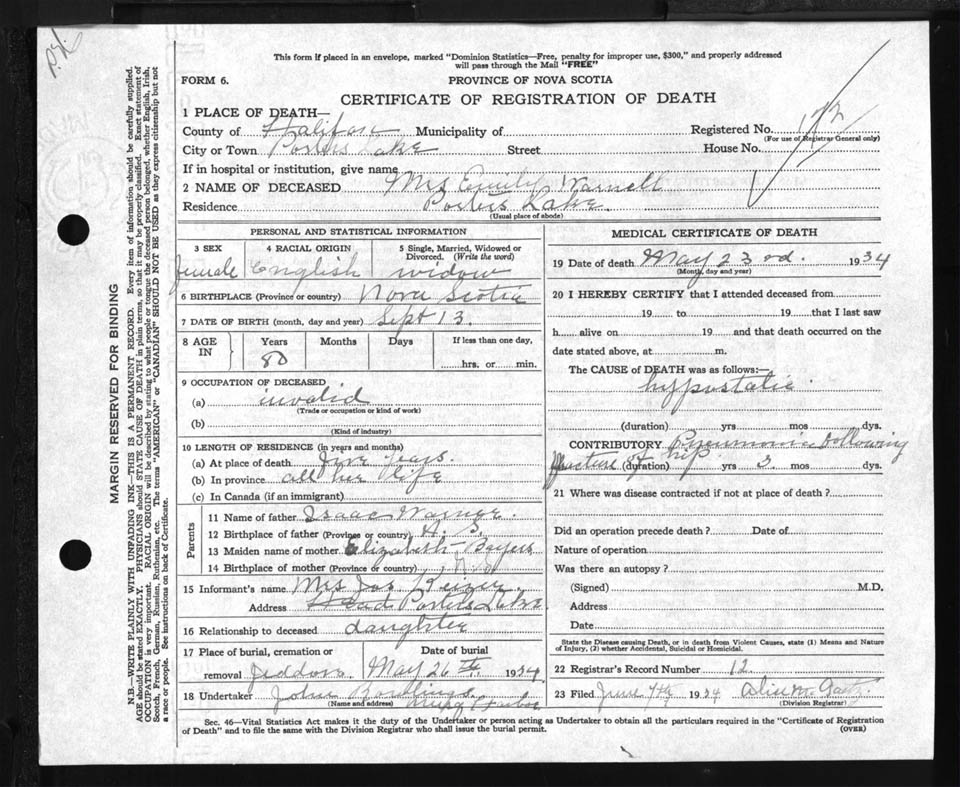 This form if placed in an envelope, marked "Dominion Statistics—Free, penalty for improper use, $300," and properly addressed
will pass through the Mail "FREE"
FORM 6.
PROVINCE OF NOVA SCOTIA
CERTIFICATE OF REGISTRATION OF DEATH
1 PLACE OF DEATH—
County of Halifax Municipality of Registered No. 172
(For use of Registrar General only)
City or Town Porters Lake Street House No.
If in hospital or institution, give name
2 NAME OF DECEASED Mrs Emily Warnell
Residence Porters Lake.
(Usual place of abode)
PERSONAL AND STATISTICAL INFORMATION
3 SEX 4 RACIAL ORIGIN 5 Single, Married, Widowed or
Divorced. (Write the word)
female English widow
6 BIRTHPLACE (Province or country) Nova Scotia
7 DATE OF BIRTH (month, day and year) Sept 13.
8 AGE IN Years Months Days If less than one day,
80 hrs. or min.
9 OCCUPATION OF DECEASED
(a) invalid
(Trade or occupation or kind of work)
(b)
(Kind of industry)
10 LENGTH OF RESIDENCE (in years and months)
(a) At place of death five years.
(b) In province all her life
(c) In Canada (if an immigrant)
Parents
11 Name of father Isaac Warner
12 Birthplace of father (Province or country) N. S.
13 Maiden name of mother Elizabeth Bayers
14 Birthplace of mother (Province or country)
15 Informant's name Mrs Jas Keizer
Address Head Porters Lake
16 Relationship to deceased daughter
17 Place of burial, cremation or removal Date of burial
Jeddore May 26th. 1934
18 Undertaker John Bowlings
(Name and address) Musq Harbor
MEDICAL CERTIFICATE OF DEATH
19 Date of death May 23rd. 1934
(Month, day and year)
20 I HEREBY CERTIFY that I attended deceased from
19 to 19 that I last saw
h alive on 19 and that death occurred on the
date stated above, at m.
The CAUSE of DEATH was as follows:—
hypostatic
(duration) yrs mos dys.
CONTRIBUTORY Pneumonia following
fracture of hip (duration) yrs 3 mos dys.
21 Where was disease contracted if not at place of death?
Did an operation precede death? Date of
Nature of operation
Was there an autopsy?
(Signed) M.D.
Address
Date
State the Disease causing Death, or in death from Violent Causes, state (1) Means and Nature
of Injury, (2) whether Accidental, Suicidal or Homicidal.
22 Registrar's Record Number 12
23 Filed June 7th 1934
(Division Registrar)
Sec. 46—Vital Statistics Act makes it the duty of the Undertaker or person acting as Undertaker to obtain all the particulars required in the "Certificate of Registration
of Death" and to file the same with the Division Registrar who shall issue the burial permit.
(OVER)
MARGIN RESERVED FOR BINDING
N.B.—WRITE PLAINLY WITH UNFADING INK—THIS IS A PERMANENT RECORD. Every item of information should be carefully supplied.
AGE should be stated EXACTLY. PHYSICIANS should STATE CAUSE OF DEATH in plain terms, so that it may be properly classified. Exact statement of
OCCUPATION is very important. RACIAL ORIGIN will be described by stating to what people or tongue the deceased person belonged, whether English, Irish,
Scotch, French, German, Russian, Ruthenian, etc. The terms "AMERICAN" or "CANADIAN" SHOULD NOT BE USED as they express citizenship but not
a race or people. See instructions on back of Certificate.